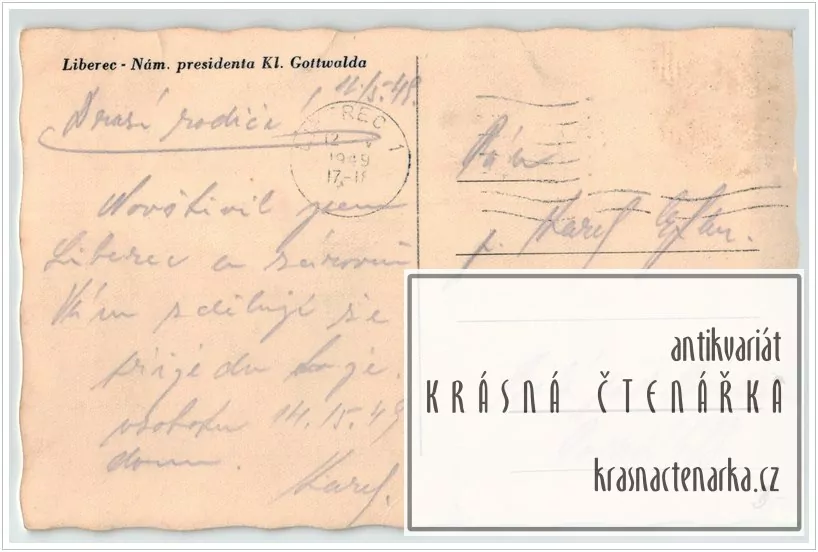 Liberec - Nám. presidenta Kl. Gottwalda
11/5.48.
Drazí rodiče!
REC 1
12 V
1949
17-18
Navštívil jsem
Liberec a zároveň
Vám sděluji že
přijedu
v sobotu 14./5. 49
domu.
Karel.
Pán
p. Karel
antikvariát
KRÁSNÁ ČTENÁŘKA
krasnactenarka.cz